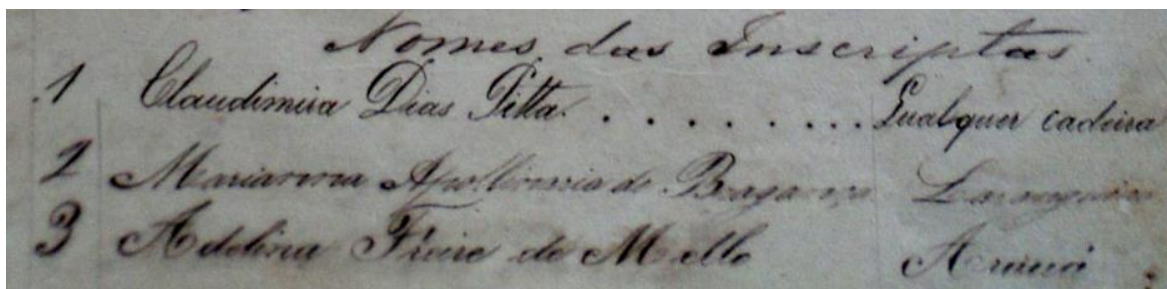 Nomes das Inscriptas
1 Claudimira Dias Pitta. . . . . . . . . . Qualquer cadeira
2 Marianna Apollonia de Bragança Larangeiras
3 Adelina Freire de Mello Arauá